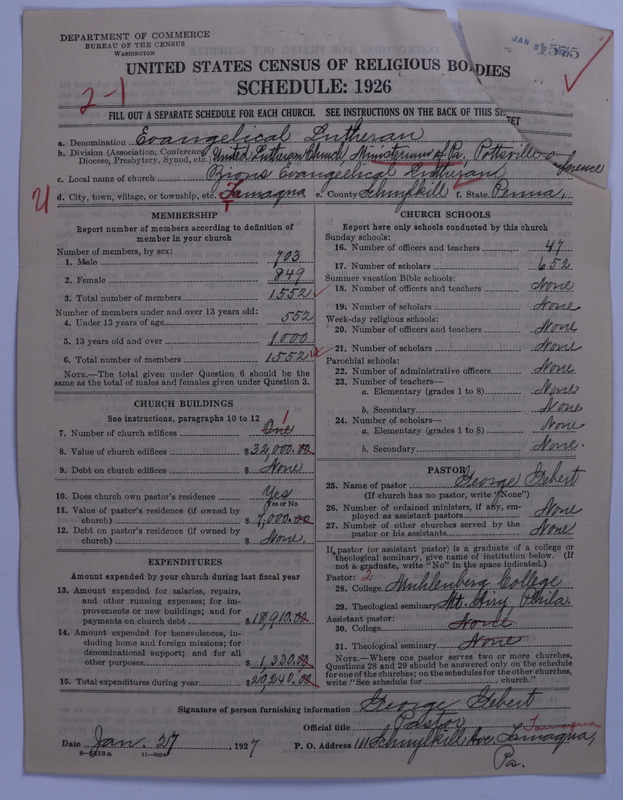 DEPARTMENT OF COMMERCE
BUREAU OF THE CENSUS
WASHINGTON
JAN
UNITED STATES CENSUS OF RELIGIOUS BODIES
SCHEDULE: 1926
2-1
FILL OUT A SEPARATE SCHEDULE FOR EACH CHURCH. SEE INSTRUCTIONS ON THE BACK OF THIS SHEET
a. Denomination Evangelical Lutheran
b. Division (Association, Conference, United Lutheran Church, Ministerium of Pa. Pottsville Conference
Diocese, Presbytery, Synod, etc.)
c. Local name of church Zions Evangelical Lutheran
d. City, town, village, or township, etc. Tamaqua e. County Schuylkill f. State Penna.
MEMBERSHIP
Report number of members according to definition of
member in your church
Number of members, by sex:
1. Male 703
2. Female 849
3. Total number of members 1552
Number of members under and over 13 years old:
4. Under 13 years of age 552
5. 13 years old and over 1000
6. Total number of members 1552
NOTE.—The total given under Question 6 should be the
same as the total of males and females given under Question 3.
CHURCH BUILDINGS
See instructions, paragraphs 10 to 12
7. Number of church edifices One 1
8. Value of church edifices $32,000.00
9. Debt on church edifices $ None
10. Does church own pastor's residence Yes
Yes or No
11. Value of pastor's residence (if owned by
church) $ 7,000.00
12. Debt on pastor's residence (if owned by
church) $ None.
EXPENDITURES
Amount expended by your church during last fiscal year
13. Amount expended for salaries, repairs,
and other running expenses; for im-
provements or new buildings; and for
payments on church debt $18,910.00
14. Amount expended for benevolences, in-
cluding home and foreign missions; for
denominational support; and for all
other purposes $ 1,330.00
15. Total expenditures during year $20,240.00
CHURCH SCHOOLS
Report here only schools conducted by this church
Sunday schools:
16. Number of officers and teachers 47
17. Number of scholars 652
Summer vacation Bible schools:
18. Number of officers and teachers None
19. Number of scholars None
Week-day religious schools:
20. Number of officers and teachers None
21. Number of scholars None
Parochial schools:
22. Number of administrative officers None
23. Number of teachers—
a. Elementary (grades 1 to 8) None
b. Secondary None
24. Number of scholars—
a. Elementary (grades 1 to 8) None
b. Secondary None.
PASTOR
25. Name of pastor George Gebert
(If church has no pastor, write "None")
26. Number of ordained ministers, if any, em-
ployed as assistant pastors None
27. Number of other churches served by the
pastor or his assistants None
If pastor (or assistant pastor) is a graduate of a college or
theological seminary, give name of institution below. (If
not a graduate, write "No" in the space indicated.)
Pastor: 2
28. College Muhlenberg College
29. Theological seminary Mt. Airy Phila.
Assistant pastor:
30. College None
31. Theological seminary None
NOTE.—Where one pastor serves two or more churches,
Questions 28 and 29 should be answered only on the schedule
for one of the churches; on the schedules for the other churches,
write "See schedule for church."
Signature of person furnishing information George Gebert
Official title Pastor
Tamaqua
Date Jan. 27, 1927 P. O. Address 111 Schuylkill Ave. Tamaqua,
Pa.